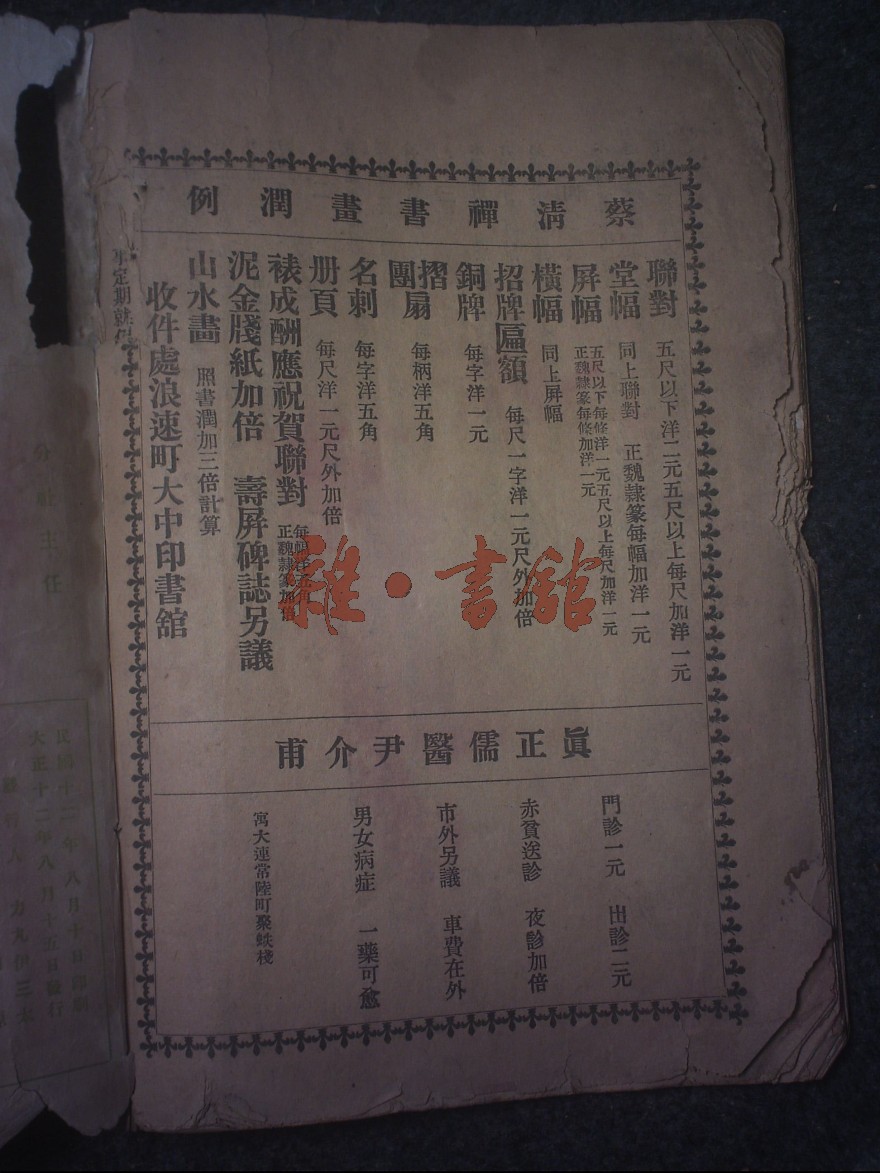 蔡淸禪書畫潤例
聯對 五尺以下洋二元五尺以上每尺加洋一元
堂幅 同上聯對 正魏隸篆每幅加洋一元
屏幅 五尺以下每條洋一元五尺以上每尺加洋一元
正魏隸篆每條加洋一元
橫幅 同上屏幅
招牌匾額 每尺一字洋一元尺外加倍
銅牌 每字洋一元
摺扇
團 每柄洋五角
名刺 每字洋五角
册頁 每尺洋一元尺外加倍
裱成酬應祝賀聯對 每幅洋五角
正魏隸篆加倍
泥金牋紙加倍 壽屏碑誌另議
山水畫 照書潤加三倍計算
收件處浪速町大中印書舘
眞正儒醫尹介甫
門診一元 出診二元
赤貧送診 夜診加倍
市外另議 車費在外
男女病症 一藥可愈
寓大連常陸町聚蚨棧
雜·書舘
分社主任
民國十二年八月十日印刷
大正十二年八月十五日發行